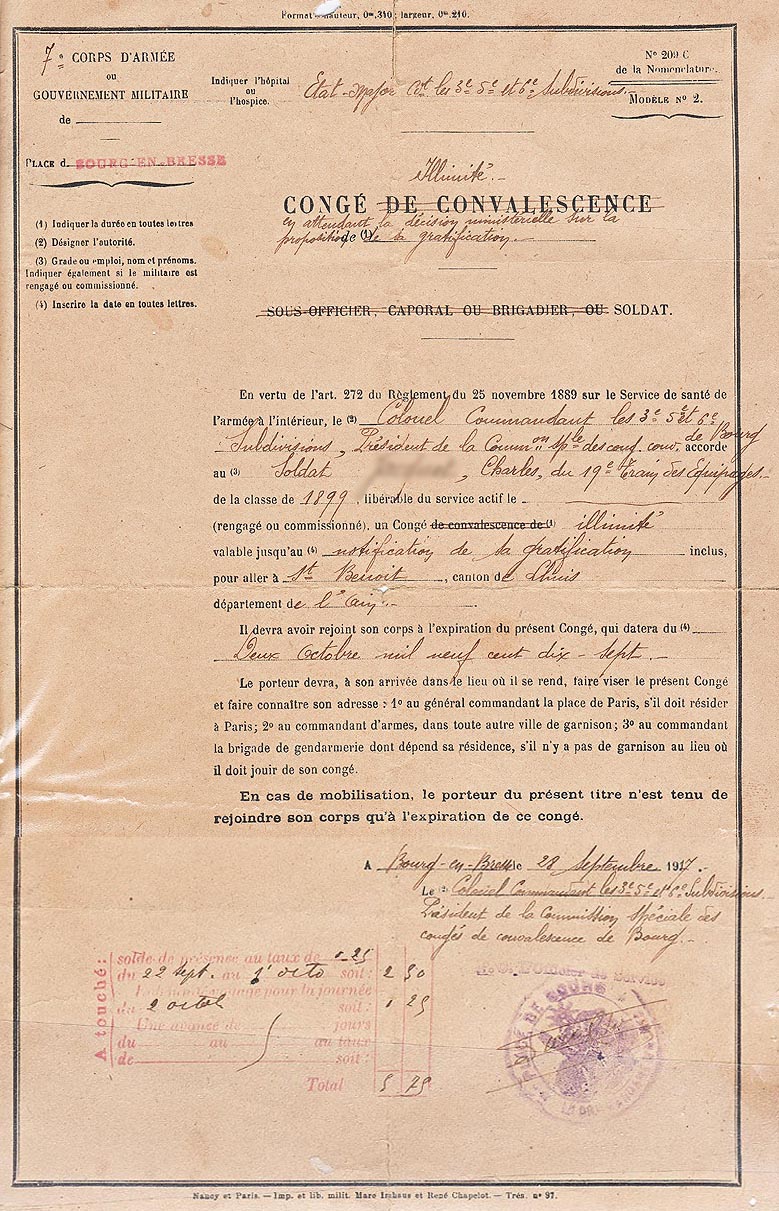 Format : hauteur, 0m.310 ; largeur, 0m.210.
7e CORPS D'ARMÉE
ou
GOUVERNEMENT MILITAIRE
de
PLACE d BOURG-EN-BRESSE
Indiquer l'hôpital
ou
l'hospice.
Etat-Major Ct les 3e 5e et 6e Subdivisions.
N° 209 C
de la Nomenclature.
MODÈLE N° 2.
(1) Indiquer la durée en toutes lettres
(2) Désigner l'autorité.
(3) Grade ou emploi, nom et prénoms.
Indiquer également si le militaire est
rengagé ou commissionné.
(4) Inscrire la date en toutes lettres.
Illimité.
CONGÉ DE CONVALESCENCE
en attendant la décision ministerielle sur la
proposition de (1) de sa gratification.
SOUS-OFFICIER, CAPORAL OU BRIGADIER, OU SOLDAT.
En vertu de l'art. 272 du Règlement du 25 novembre 1889 sur le Service de santé de
l'armée à l'intérieur, le (2) Colonel Commandant les 3e 5e et 6e
Subdivisions, Président de la Common Sple des cong. conv. de Bourg accorde
au (3) Soldat , Charles, du 19e Train des Equipages.
de la classe de 1899, libérable du service actif le
(rengagé ou commissionné), un Congé de convalescence de (1) illimité
valable jusqu'au (4) notification de sa gratification inclus,
pour aller à St Benoit, canton de Lhuis
département de l'Ain.
Il devra avoir rejoint son corps à l'expiration du présent Congé, qui datera du (4)
Deux Octobre mil neuf cent dix-sept.
Le porteur devra, à son arrivée dans le lieu où il se rend, faire viser le présent Congé
et faire connaître son adresse : 1° au général commandant la place de Paris, s'il doit résider
à Paris; 2° au commandant d'armes, dans toute autre ville de garnison; 3° au commandant
la brigade de gendarmerie dont dépend sa résidence, s'il n'y a pas de garnison au lieu où
il doit jouir de son congé.
En cas de mobilisation, le porteur du présent titre n'est tenu de
rejoindre son corps qu'à l'expiration de ce congé.
A Bourg-en-Bresse le 28 Septembre 1917.
Le (2) Colonel Commandant les 3e 5e et 6e Subdivisions
Président de la Commission spéciale des
congés de convalescence de Bourg.
A touché:
solde de présence au taux de 0.25
du 22 Sept. au 1er octo soit: 2 50
pour la journée
du 2 octob soit:
Une avance de jours
du au au taux
de soit:
Total 5 75
P. O. L'Officier de Service
PLACE DE BOURG
Nancy et Paris. — Imp. et lib. milit. Marc Imhaus et René Chapelot. — Trés. n° 97.